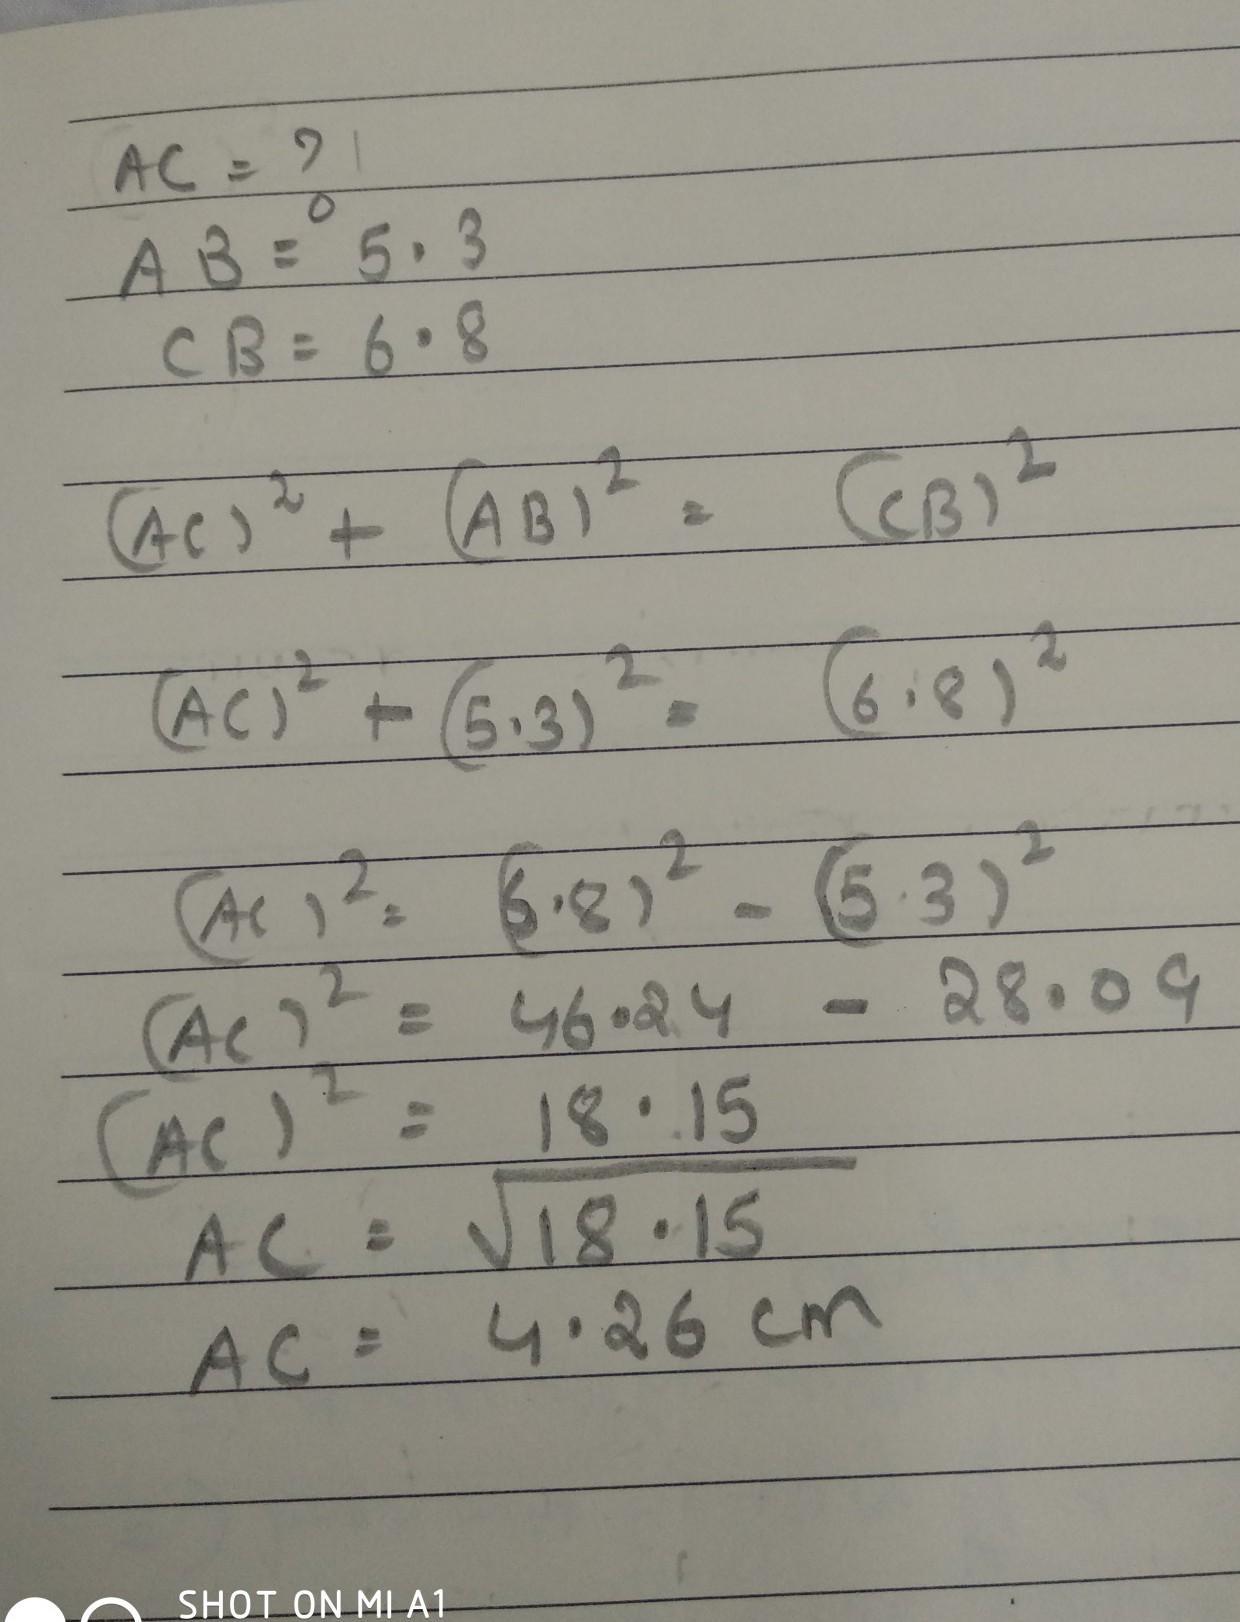 AC = ?
AB = 5.3
CB = 6.8
(AC)² + (AB)² = (CB)²
(AC)² + (5.3)² = (6.8)²
(AC)² = (6.8)² - (5.3)²
(AC)² = 46.24 - 28.09
(AC)² = 18.15
AC = √18.15
AC = 4.26 cm
SHOT ON MI A1